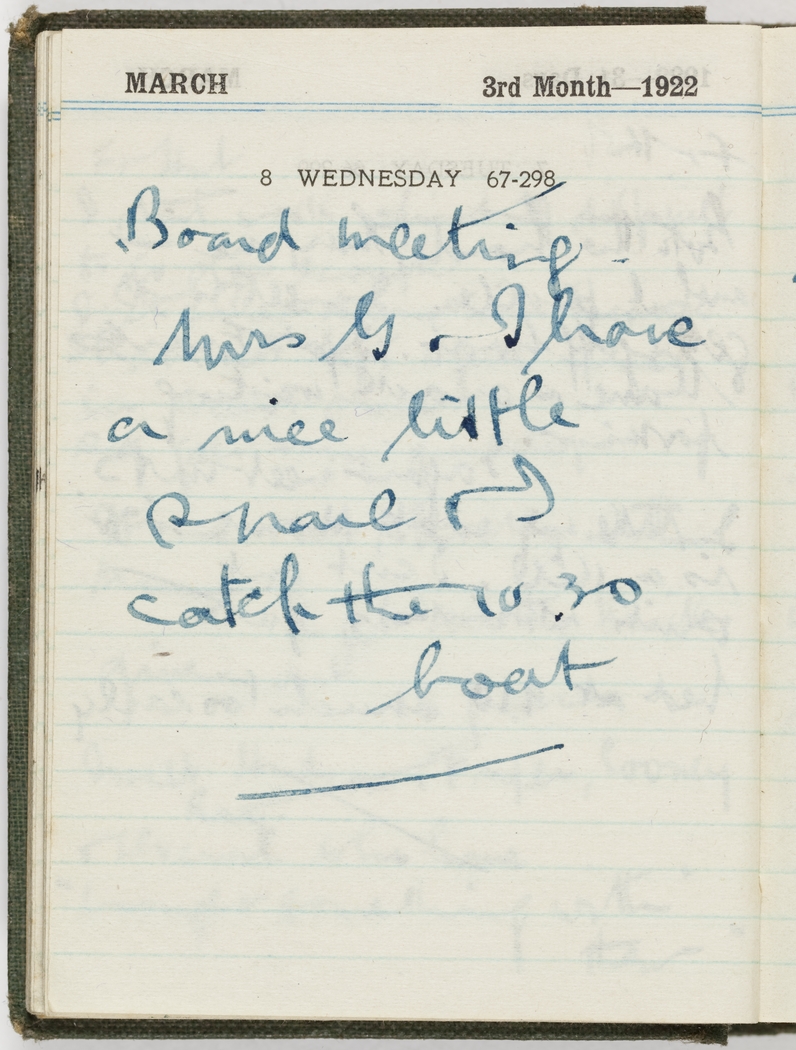 MARCH 3rd Month—1922
8 WEDNESDAY 67-298
Board meeting -
Mrs G. & I have
a nice little
& I
catch the 10.30
boat